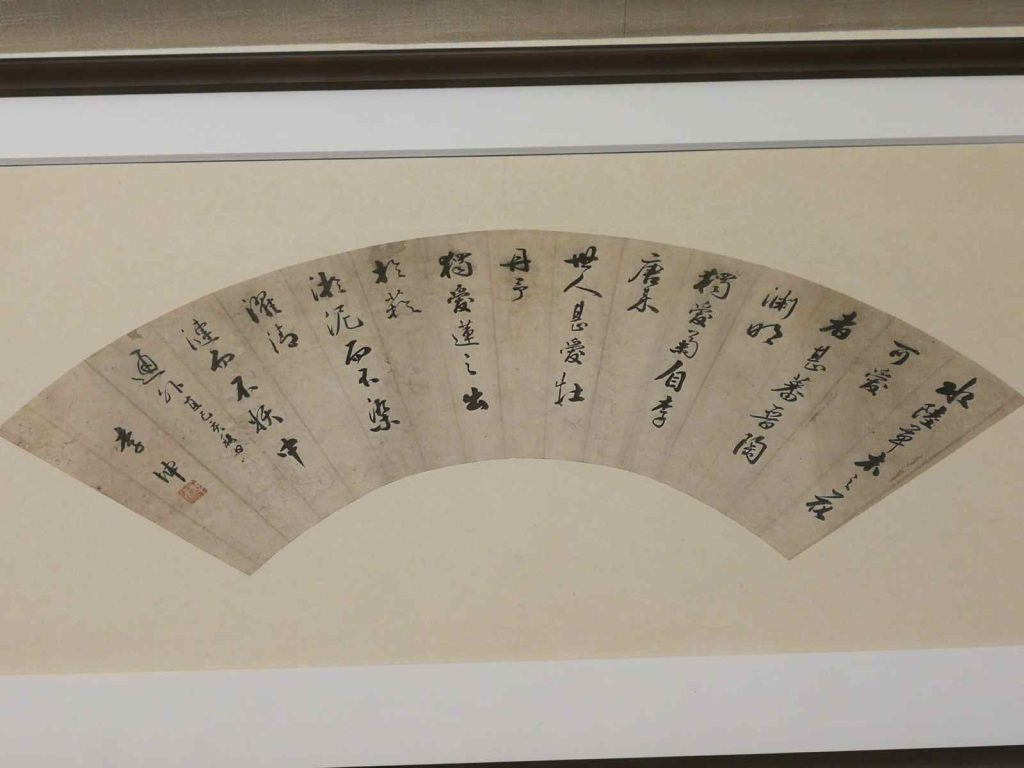 水陸草木之花
可愛
者甚蕃晋陶
淵明
獨愛菊自李
唐来
世人甚愛牡
丹予
獨愛蓮之出
於
淤泥而不染
濯清
漣而不妖中
通外直己亥秋日
李